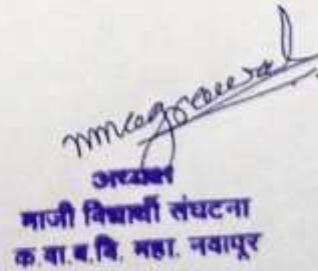 nmagrawal
अध्यक्ष
माजी विद्यार्थी संघटना
क.वा.ब.वि. महा. नवापूर